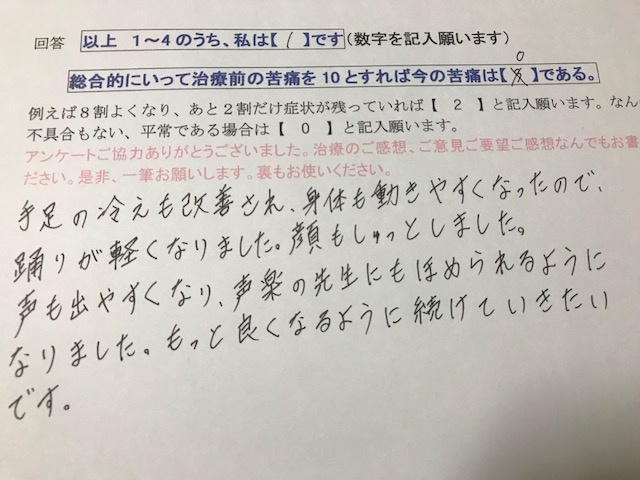 回答 以上 1～4のうち、私は【 1 】です（数字を記入願います）
0
総合的にいって治療前の苦痛を10とすれば今の苦痛は【 】である。
例えば８割よくなり、あと２割だけ症状が残っていれば【 ２ 】と記入願います。なん
不具合もない、平常である場合は【 ０ 】と記入願います。
アンケートご協力ありがとうございました。治療のご感想、ご意見ご要望ご感想なんでもお書
ださい。是非、一筆お願いします。裏もお使いください。
手足の冷えも改善され、身体も動きやすくなったので、
踊りが軽くなりました。顔もしゅっとしました。
声も出やすくなり、声楽の先生にもほめられるように
なりました。もっと良くなるように続けていきたい
です。